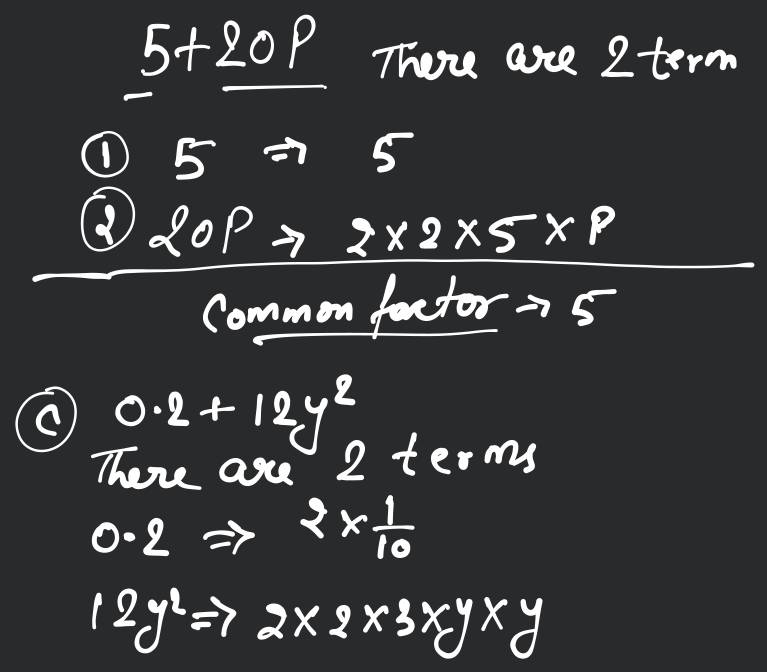 5+20P There are 2 term
① 5 ⇒ 5
② 20P → 2×2×5×P
Common factor → 5
Ⓒ 0.2+12y²
There are 2 terms
0.2 ⇒ 2×1/10
12y² ⇒ 2×2×3×y×y